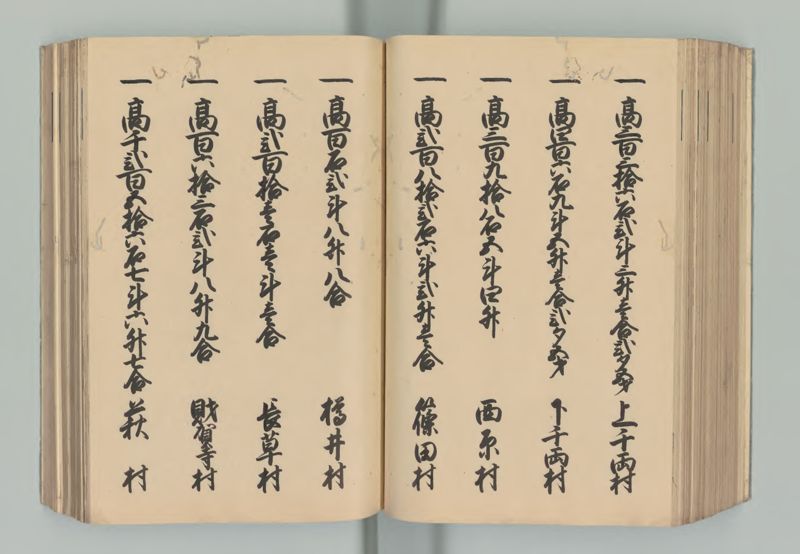 一 高三百三拾六石弐斗三升壱合弐夕五才 上千両村
一 高四百六石九斗五升壱合弐夕五才 下千両村
一 高三百九拾八石五斗四升 西原村
一 高弐百八拾弐石六斗弐升壱合 篠田村
一 高百石弐斗八升八合 樽井村
一 高弐百拾壱石壱斗壱合 長草村
一 高百六拾三石弐斗八升九合 財賀寺村
一 高千弐百五拾六石七斗六升七合 萩村